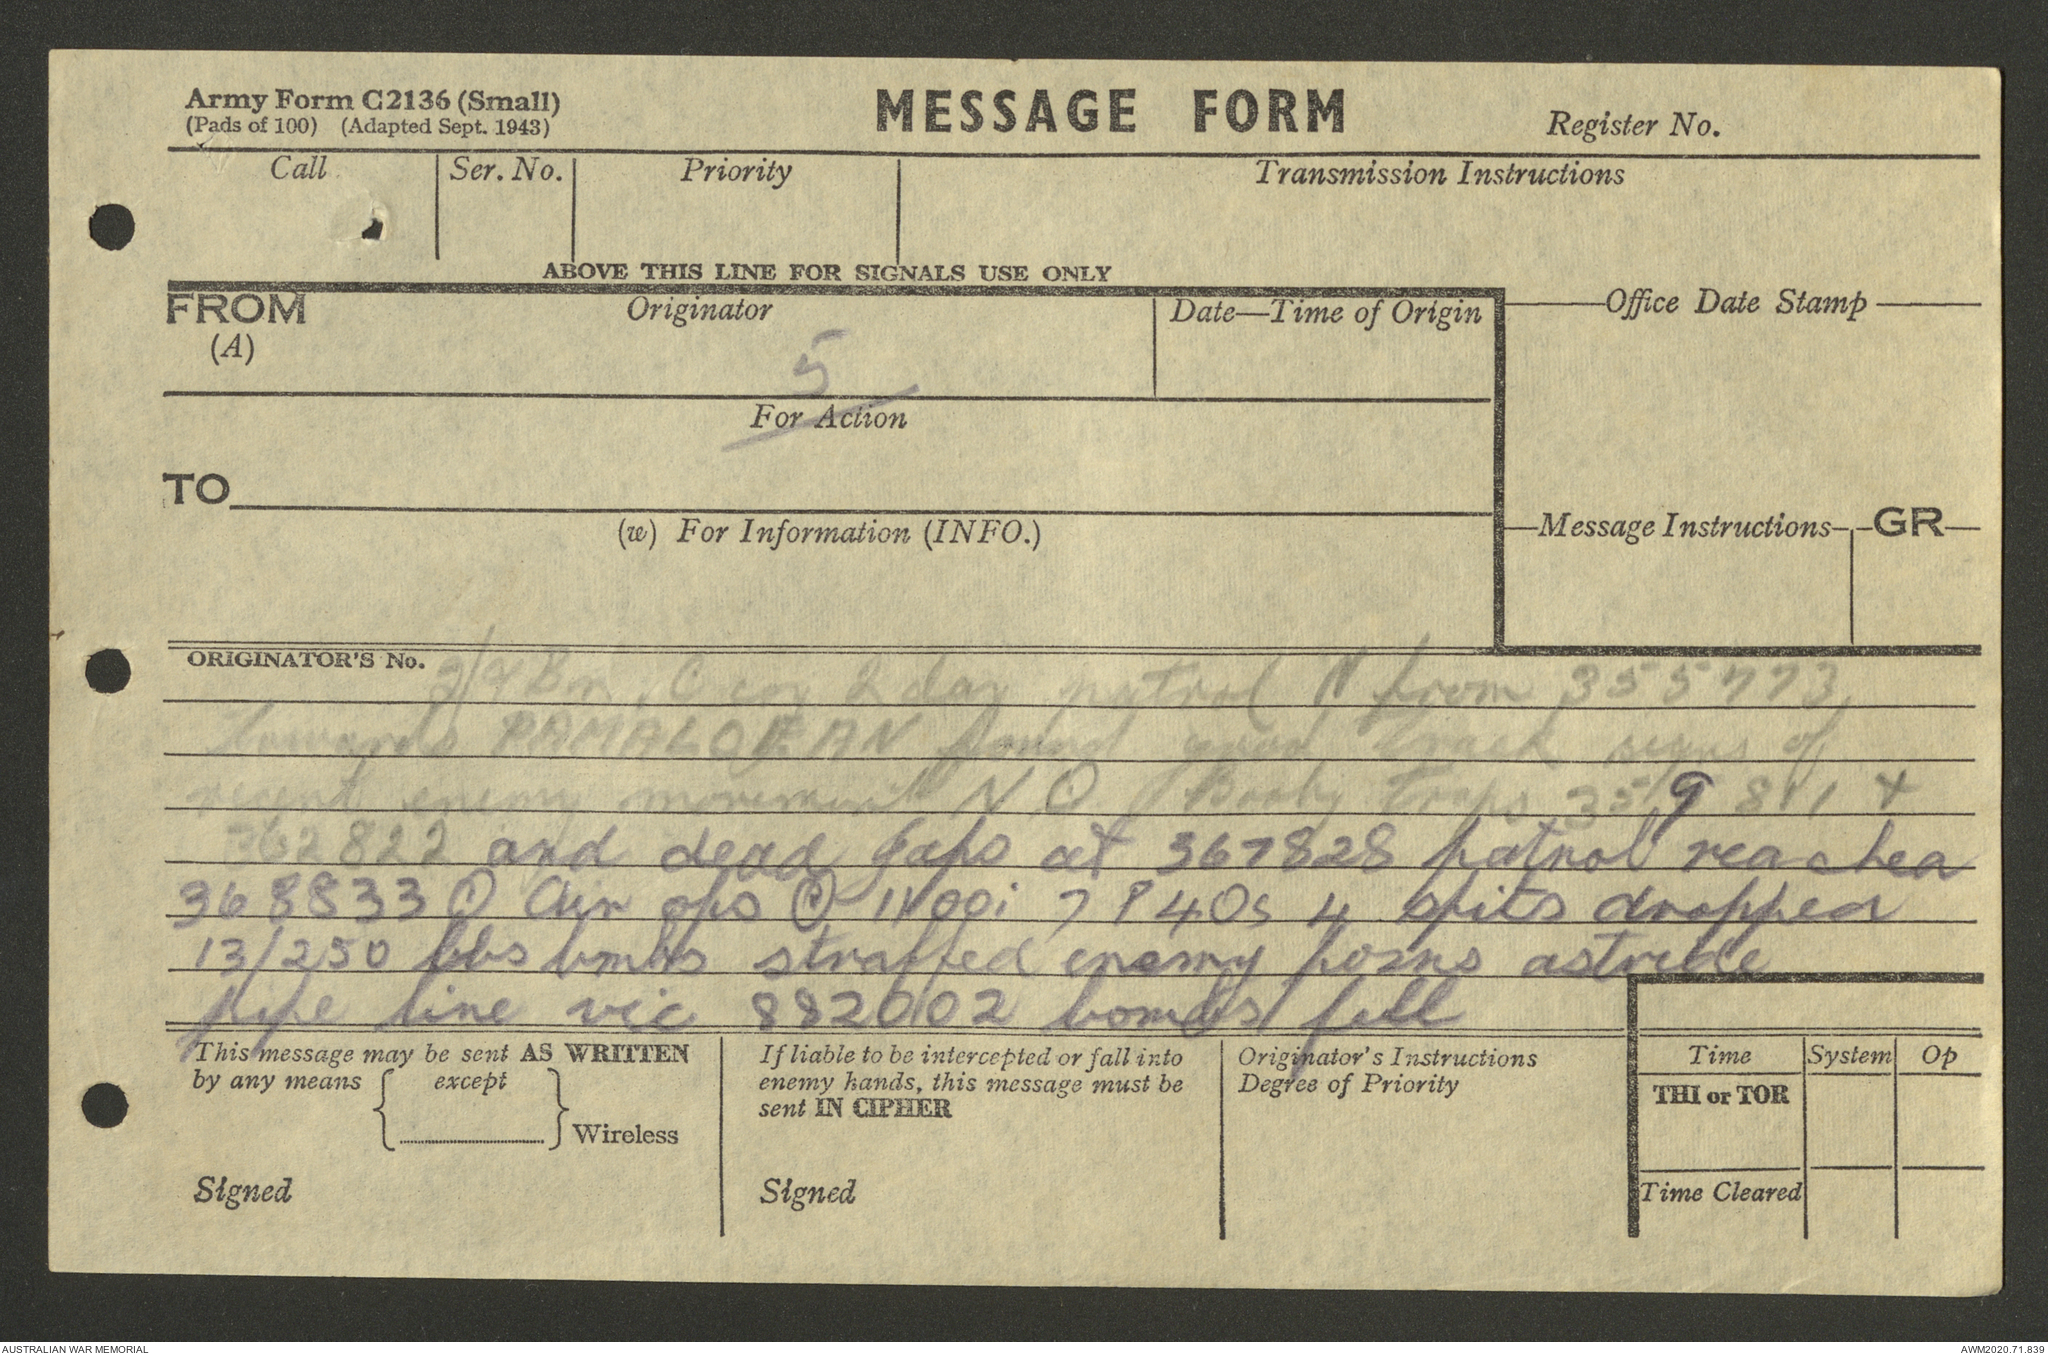 Army Form C2136 (Small)
(Pads of 100) (Adapted Sept. 1943)
MESSAGE FORM
Register No.
Call
Ser. No.
Priority
Transmission Instructions
ABOVE THIS LINE FOR SIGNALS USE ONLY
FROM
(A)
Originator
Date—Time of Origin
Office Date Stamp
5
For Action
TO
(w) For Information (INFO.)
Message Instructions
GR
ORIGINATOR'S No.
2/9 Bn C coy 2 day patrol N from 355773
towards found good track signs of
recent enemy movement Booby traps 359811 &
362822 and dead Japs at 367828 patrol reached
368833 Air ops 7 P40s 4 spits dropped
13/250 lbs bmbs straffed enemy posns astride
pipe line vic 882002 bombs fell
This message may be sent AS WRITTEN
by any means { except } Wireless
Signed
If liable to be intercepted or fall into
enemy hands, this message must be
sent IN CIPHER
Signed
Originator's Instructions
Degree of Priority
Time
System
Op
THI or TOR
Time Cleared
AUSTRALIAN WAR MEMORIAL
AWM2020.71.839